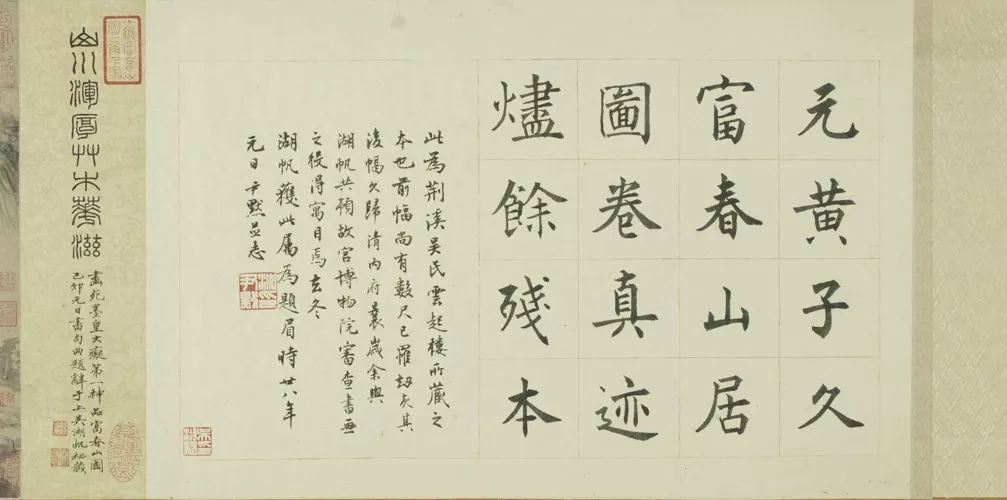 元黄子久
富春山居
圖卷真迹
燼餘殘本
此為荆溪吴氏雲起樓所藏之
本也前幅尚有數尺已罹劫灰其
後幅久歸清内府曩歲余與
湖帆共預故宫博物院審查書畫
之役得寓目焉去冬
湖帆獲此属為題眉時廿八年
元日尹默並志
山川渾厚艸木華滋
畫苑墨皇大癡第一神品富春山圖
己卯元日書句曲題辭于上吴湖帆祕藏